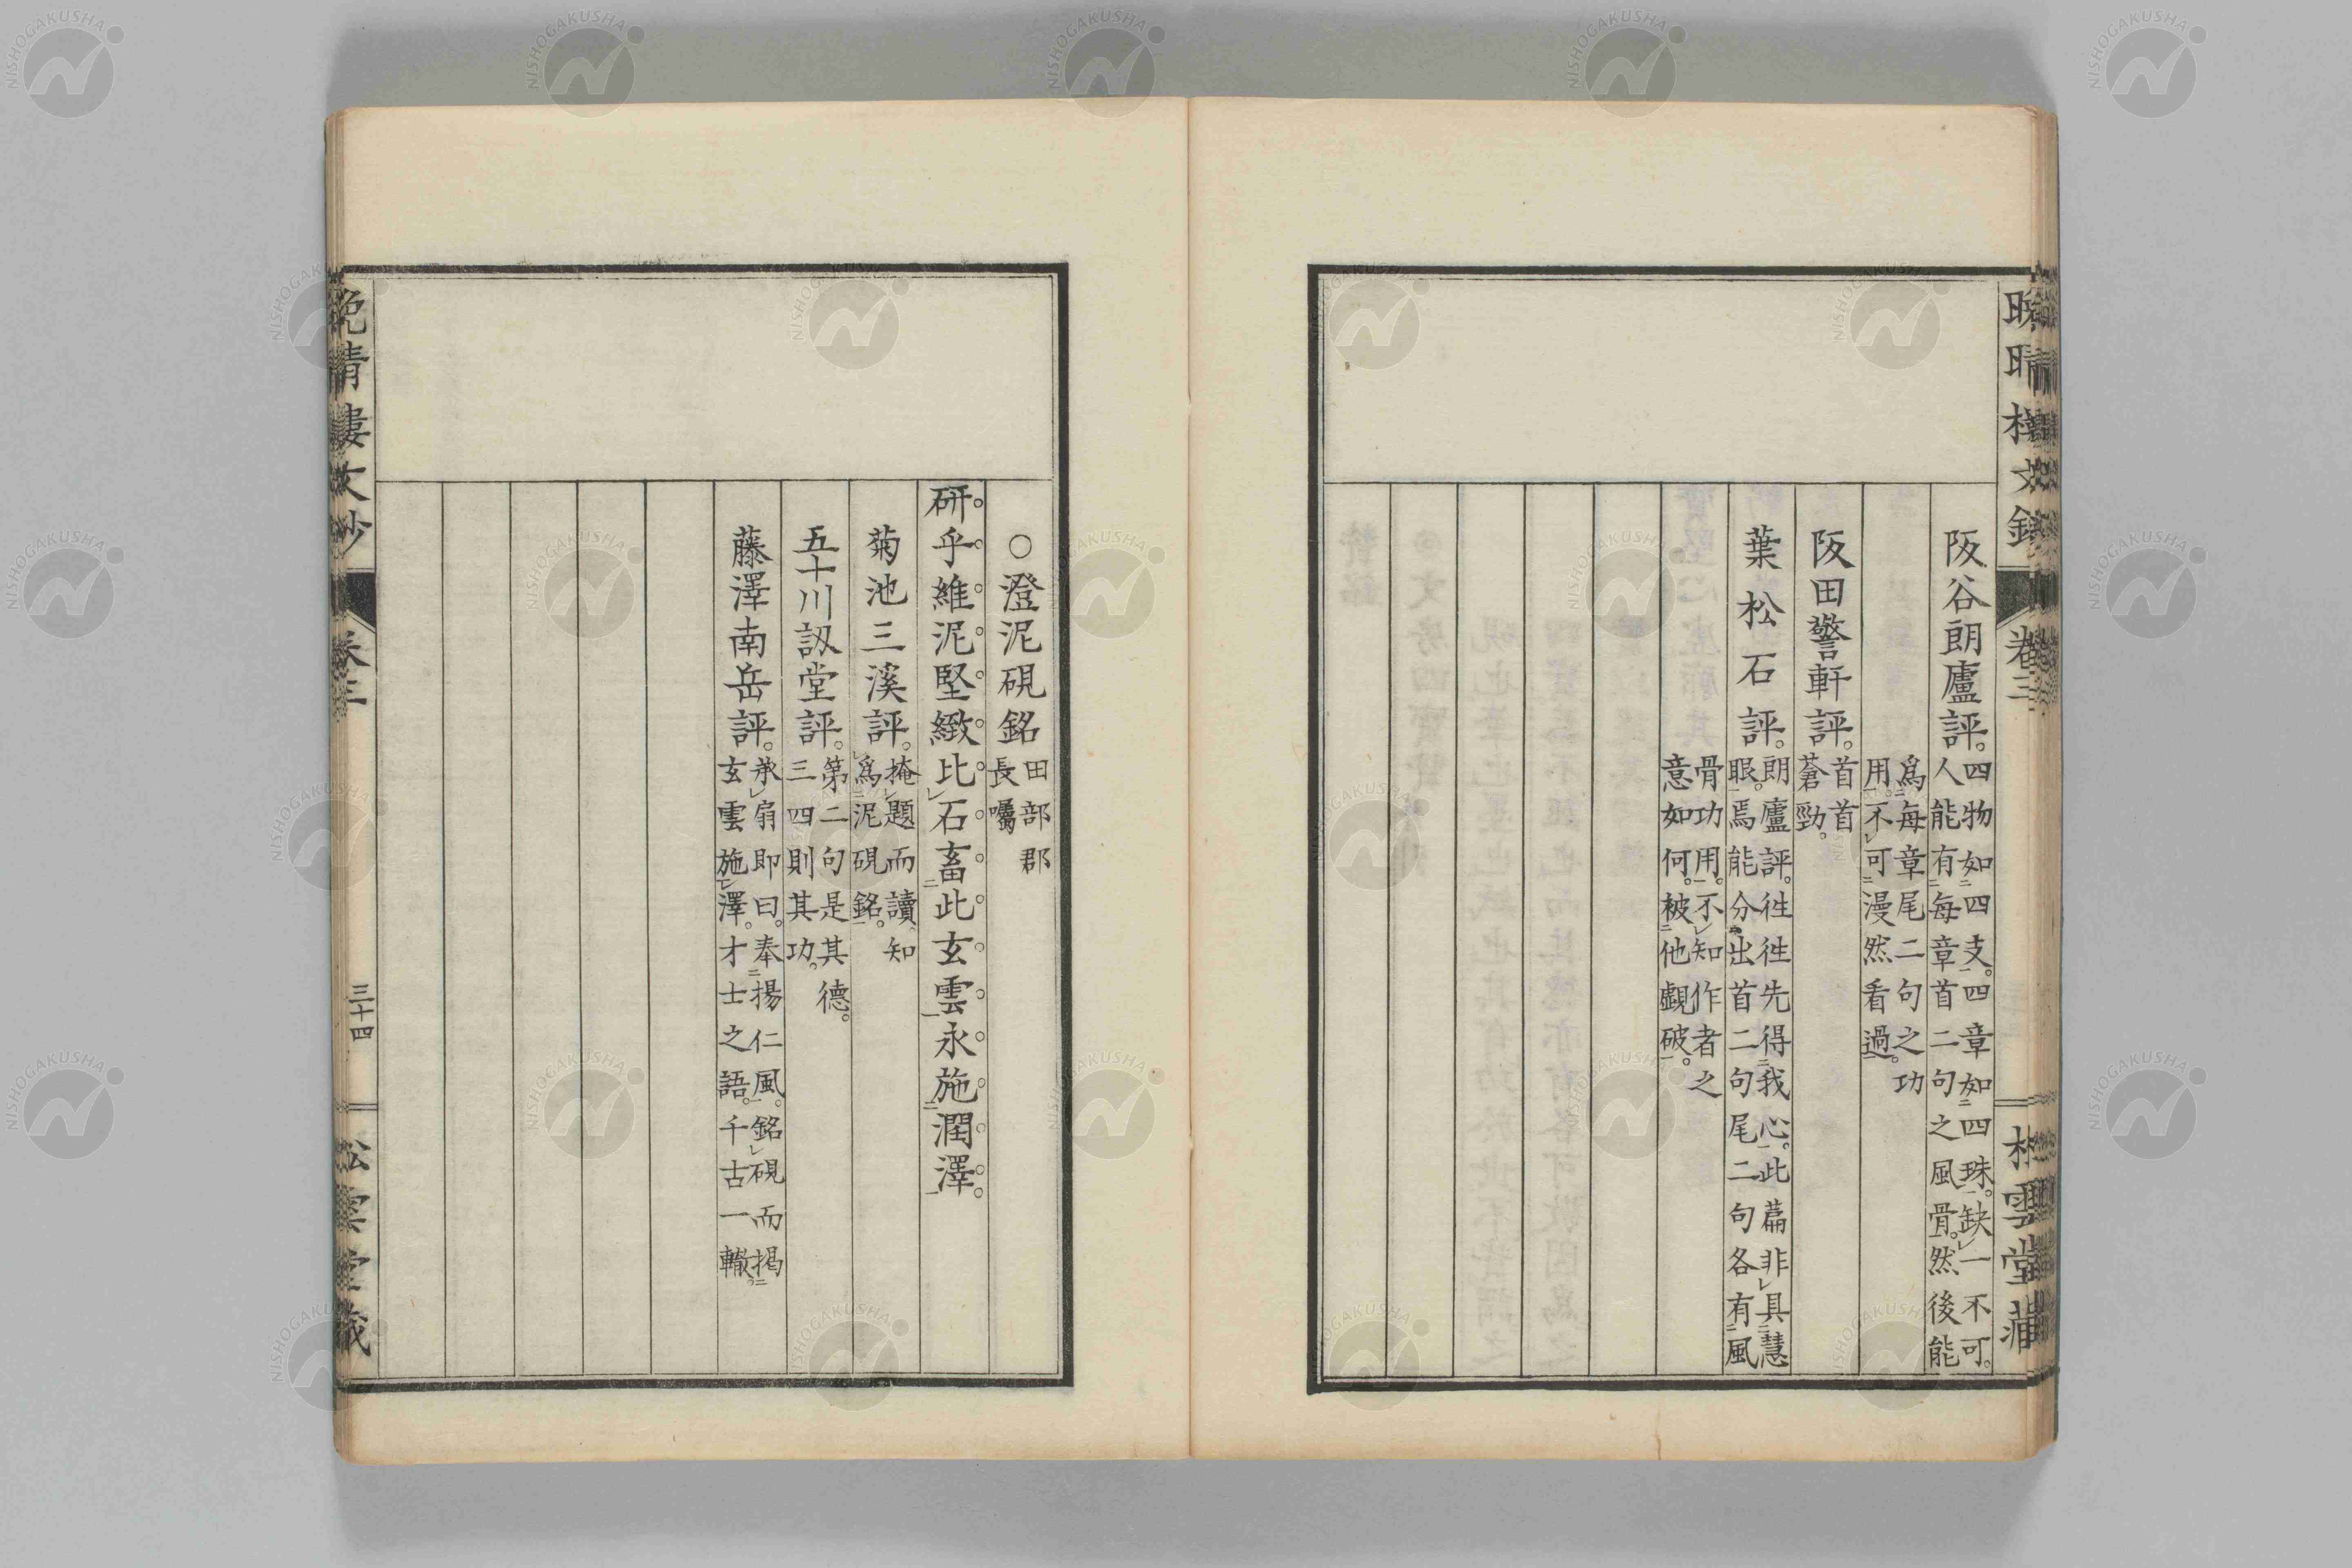 晩晴樓文鈔 卷三 松雲堂藏
阪谷朗廬評。四物如四支。四章如四珠。缺一不可。
人能有每章首二句之風骨。然後能
爲每章尾二句之功
用。不可漫然看過。
阪田警軒評。首首
蒼勁。
葉松石評。朗廬評。徃徃先得我心。此篇非具慧
眼。焉能分出首二句尾二句各有風
骨功用。不知作者之
意如何。被他覷破。
○澄泥硯銘 田部郡
長囑
研乎維泥堅緻比石畜此玄雲永施潤澤。
菊池三溪評。掩題而讀、知
爲泥硯銘。
五十川訒堂評。第二句是其德。
三四則其功。
藤澤南岳評。承扇即曰。奉揚仁風。銘硯而揭
玄雲施澤。才士之語。千古一轍。
晩晴樓文鈔 卷三 三十四 松雲堂藏